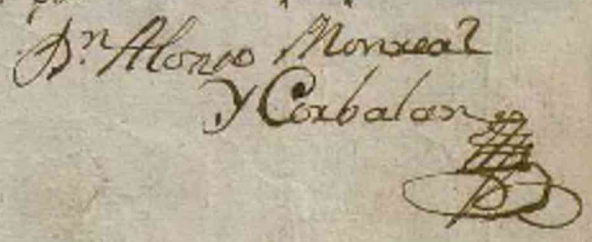 Dn Alonso Monreal
y Corbalan